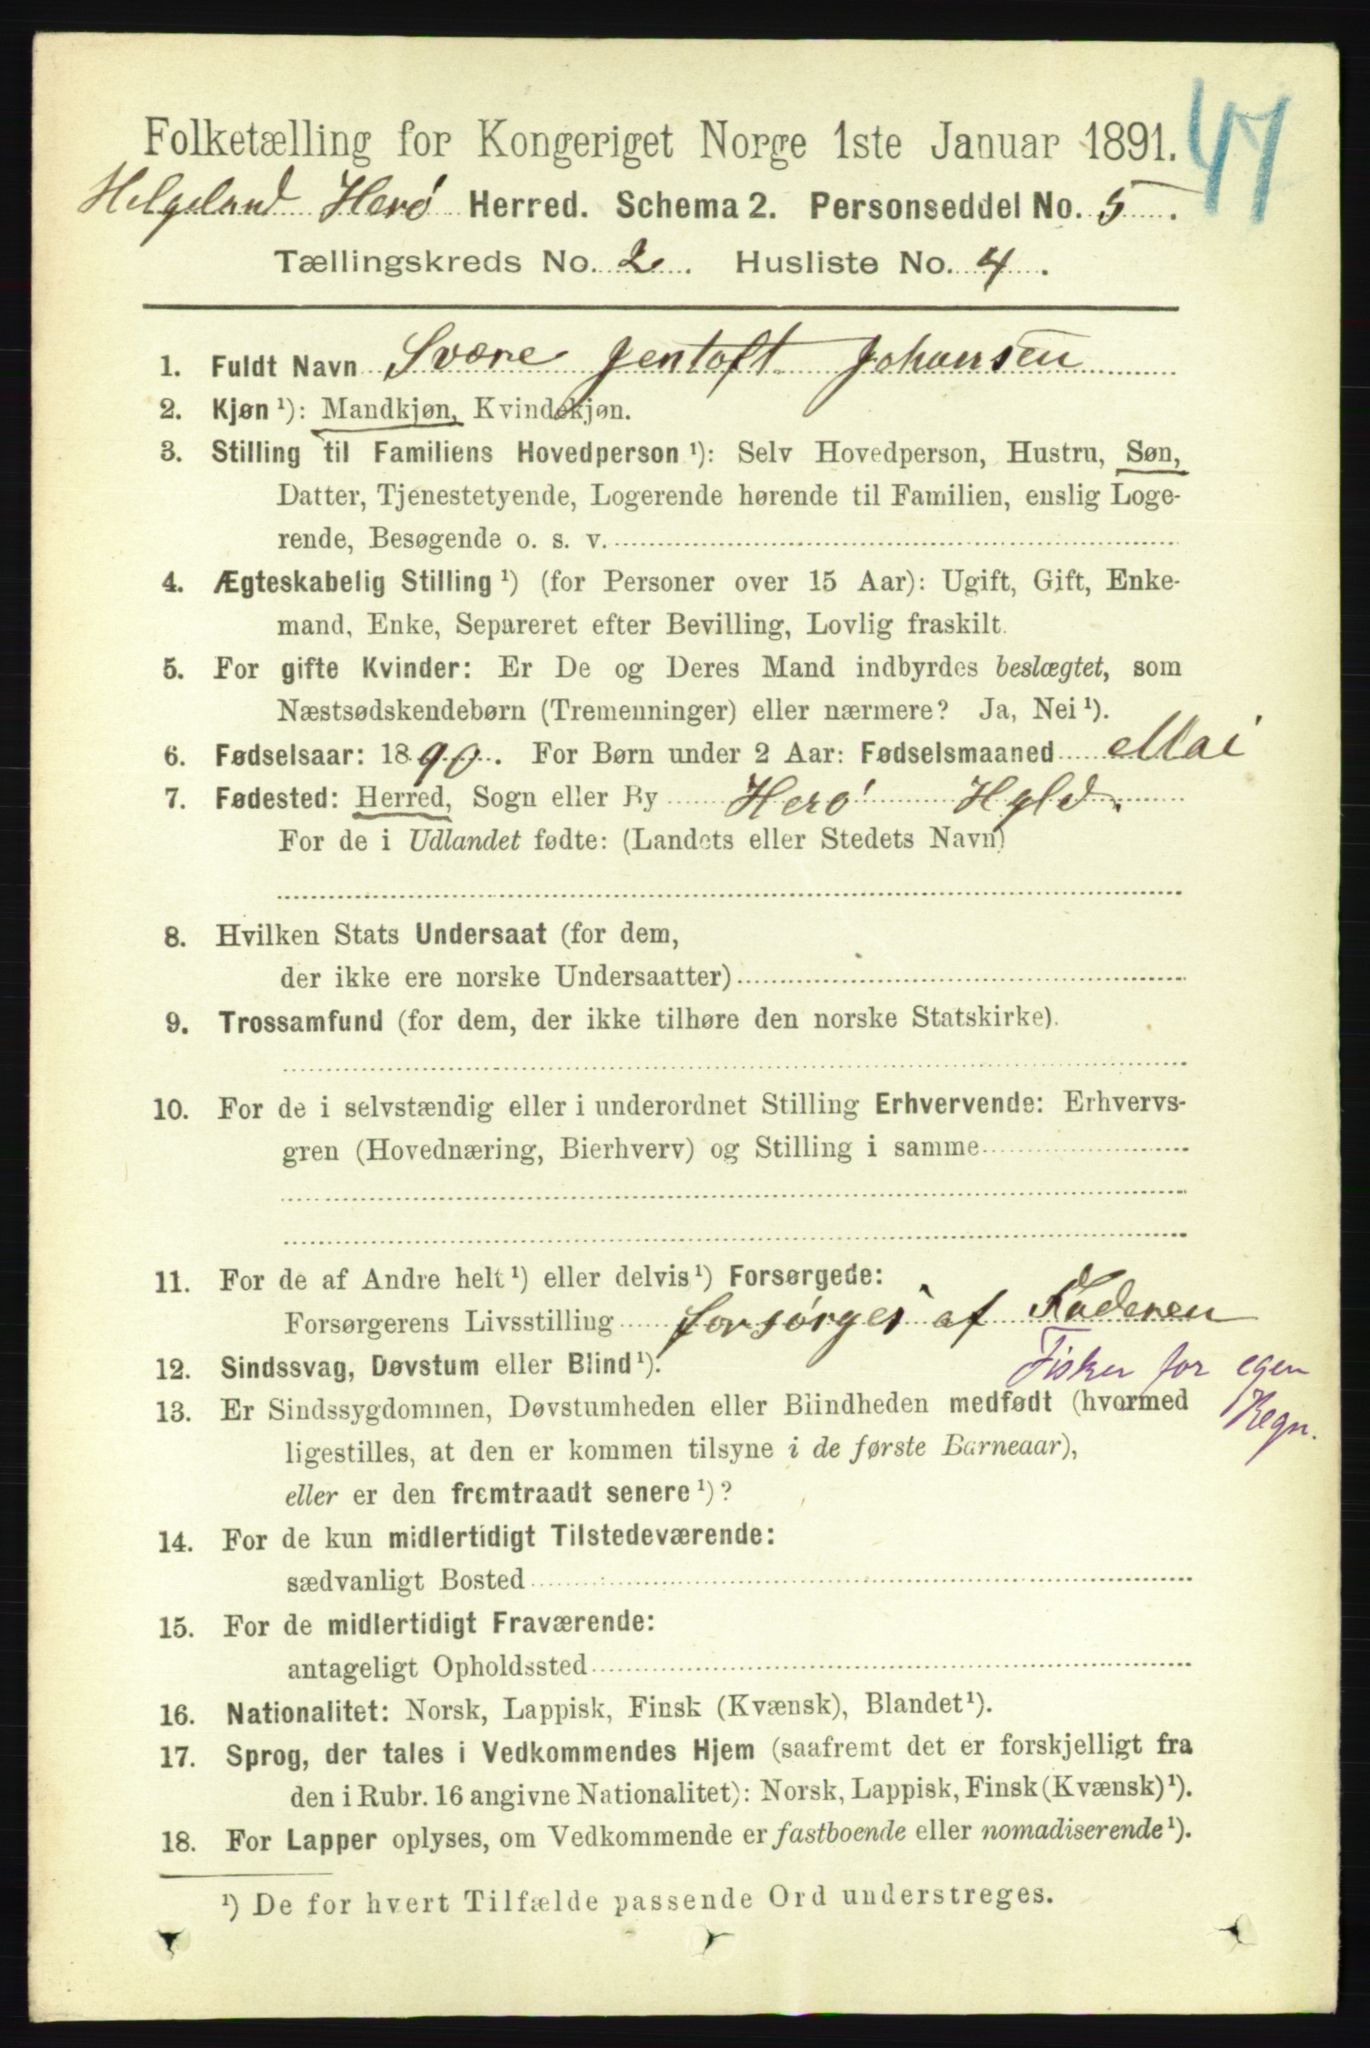 Folketælling for Kongeriget Norge 1ste Januar 1891. 47
Helgeland Herø Herred. Schema 2. Personseddel No. 5.
Tællingskreds No. 2. Husliste No. 4.
1. Fuldt Navn Svære Jentoft Johansen
2. Kjøn ¹): Mandkjøn, Kvindekjøn.
3. Stilling til Familiens Hovedperson ¹): Selv Hovedperson, Hustru, Søn,
Datter, Tjenestetyende, Logerende hørende til Familien, enslig Loge-
rende, Besøgende o. s. v.
4. Ægteskabelig Stilling ¹) (for Personer over 15 Aar): Ugift, Gift, Enke-
mand, Enke, Separeret efter Bevilling, Lovlig fraskilt.
5. For gifte Kvinder: Er De og Deres Mand indbyrdes beslægtet, som
Næstsødskendebørn (Tremenninger) eller nærmere? Ja, Nei ¹).
6. Fødselsaar: 1890. For Børn under 2 Aar: Fødselsmaaned Mai
7. Fødested: Herred, Sogn eller By Herø Hgld.
For de i Udlandet fødte: (Landets eller Stedets Navn)
8. Hvilken Stats Undersaat (for dem,
der ikke ere norske Undersaatter)
9. Trossamfund (for dem, der ikke tilhøre den norske Statskirke).
10. For de i selvstændig eller i underordnet Stilling Erhvervende: Erhvervs-
gren (Hovednæring, Bierhverv) og Stilling i samme
11. For de af Andre helt ¹) eller delvis ¹) Forsørgede:
Forsørgerens Livsstilling forsørges af Faderen
12. Sindssvag, Døvstum eller Blind ¹). Fisker for egen
13. Er Sindssygdommen, Døvstumheden eller Blindheden medfødt (hvormed Regn.
ligestilles, at den er kommen tilsyne i de første Barneaar),
eller er den fremtraadt senere ¹)?
14. For de kun midlertidigt Tilstedeværende:
sædvanligt Bosted
15. For de midlertidigt Fraværende:
antageligt Opholdssted
16. Nationalitet: Norsk, Lappisk, Finsk (Kvænsk), Blandet ¹).
17. Sprog, der tales i Vedkommendes Hjem (saafremt det er forskjelligt fra
den i Rubr. 16 angivne Nationalitet): Norsk, Lappisk, Finsk (Kvænsk) ¹).
18. For Lapper oplyses, om Vedkommende er fastboende eller nomadiserende ¹).
¹) De for hvert Tilfælde passende Ord understreges.